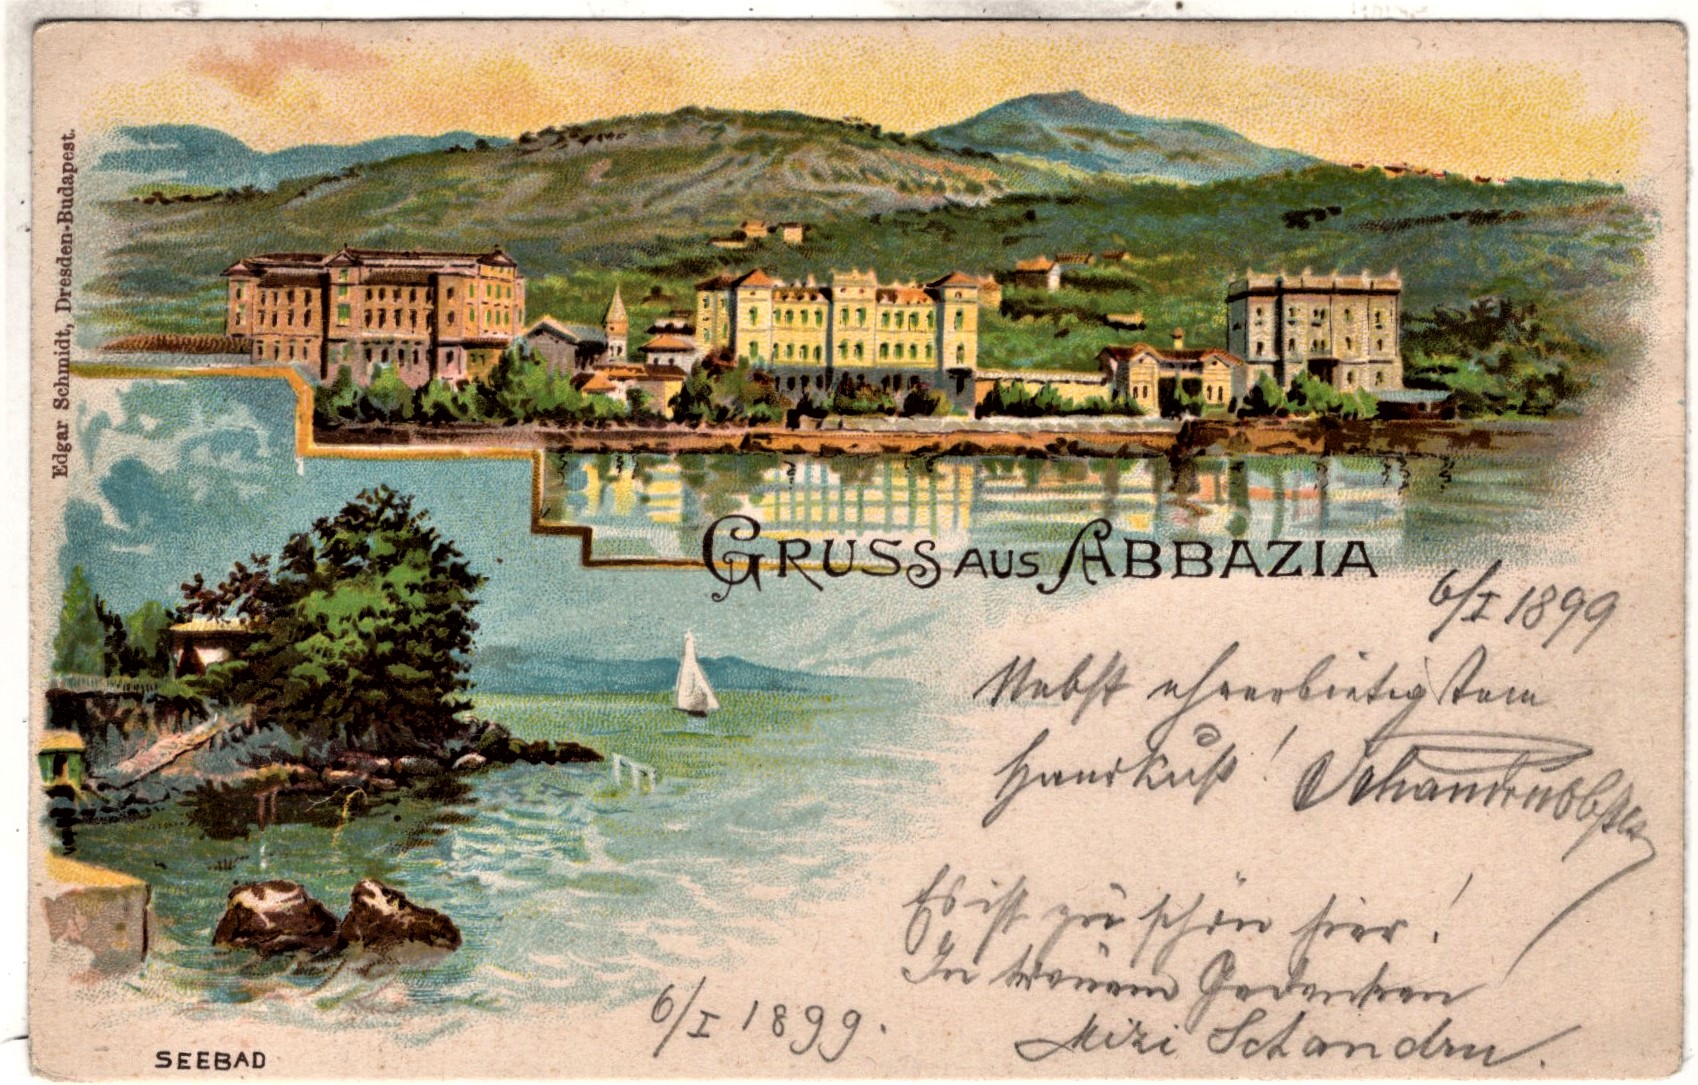 Edgar Schmidt, Dresden-Budapest.
GRUSS AUS ABBAZIA
6/I 1899
Nebst ehrerbietigstem
Handkuß!
Es ist zu schön hier!
In treuem Gedenken
Mizi Schandru.
6/I 1899.
SEEBAD